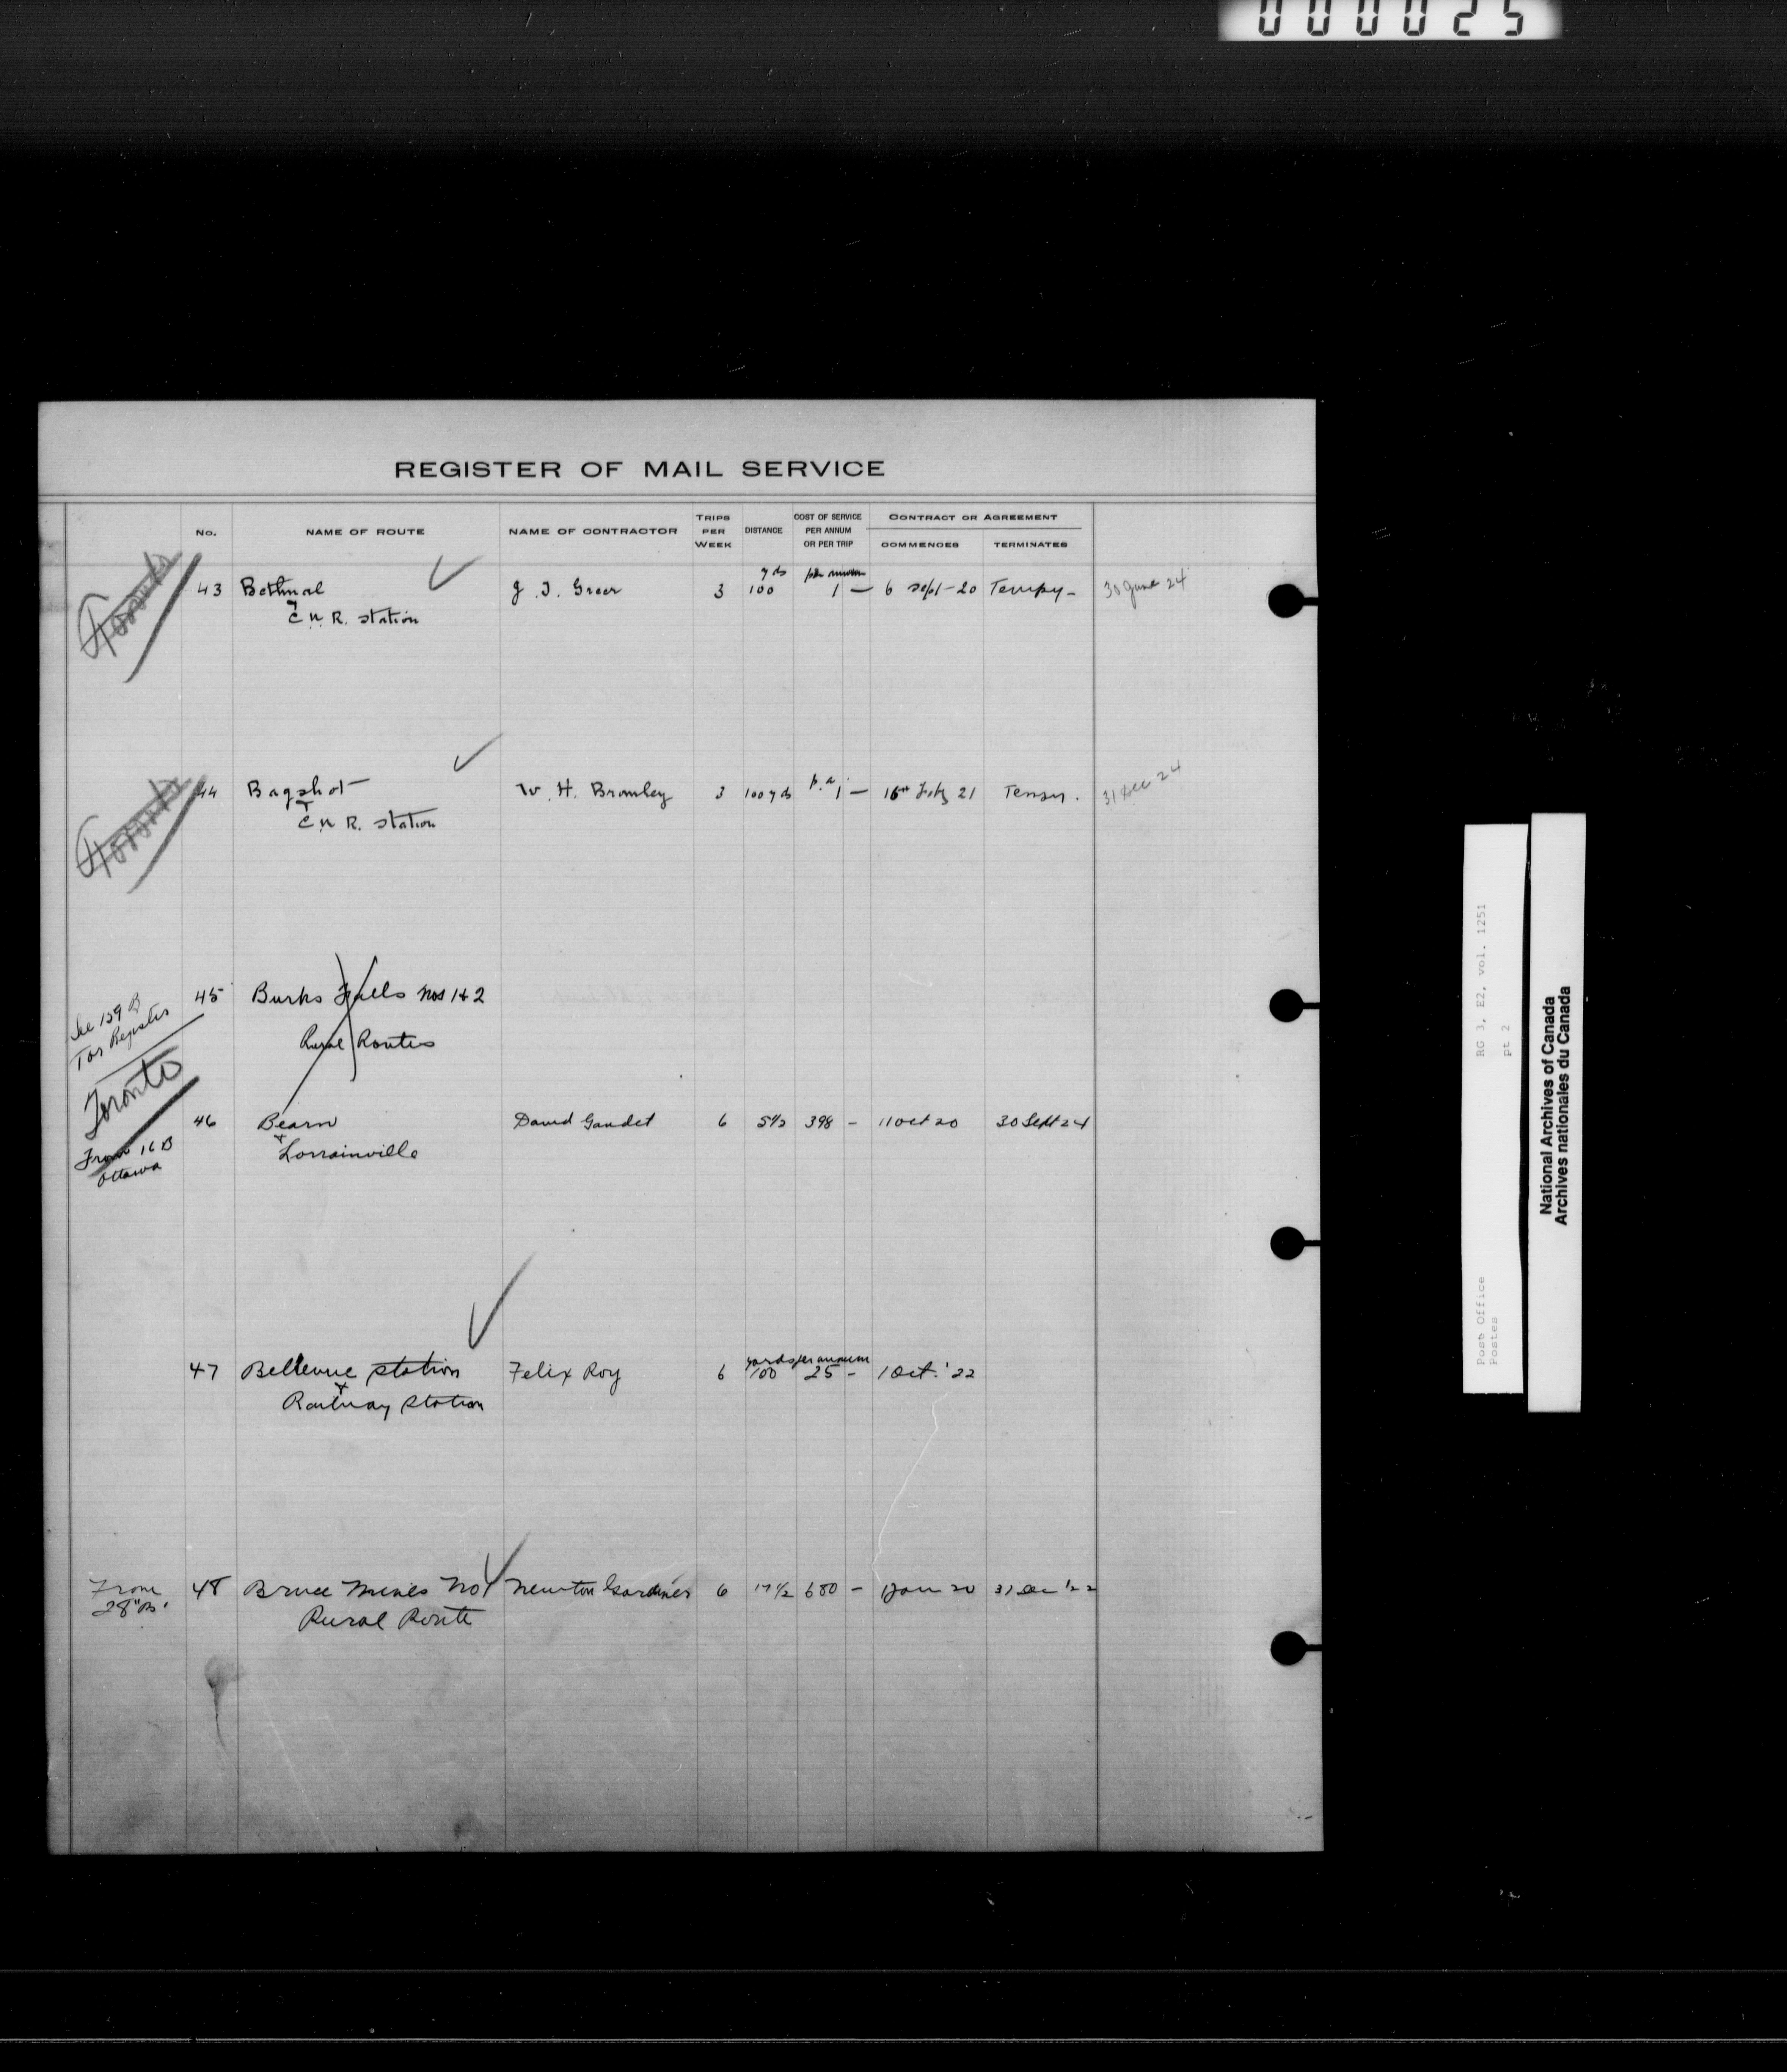 000025
REGISTER OF MAIL SERVICE
No. NAME OF ROUTE NAME OF CONTRACTOR TRIPS PER WEEK DISTANCE COST OF SERVICE PER ANNUM OR PER TRIP CONTRACT OR AGREEMENT COMMENCES TERMINATES
Toronto
yds per annum
43 Bethnal J. T. Greer 3 100 1 — 6 Sept-20 Tempy- 30 June 24
& C.N.R. station
Toronto
44 Bagshot W. H. Bromley 3 100 yds p.a. 1 — 16th Feby 21 Tempy. 31 Dec 24
& C.N.R. station
See 129 B
Tor Register
45 Burks Falls Nos 1 & 2
Rural Routes
Toronto
46 Bearn David Gaudet 6 5½ 398 - 1 Oct 20 30 Sept 24
& Lorrainville
From 16 B
Ottawa
yards per annum
47 Bellevue Station Felix Roy 6 100 25 - 1 Oct. '22
& Railway Station
From 28 "B"
48 Bruce Mines No 1 Newton Gardiner 6 17½ 680 - 1 Jan 20 31 Dec '22
Rural Route
Post Office RG 3, E2, vol. 1251
Postes pt 2
National Archives of Canada
Archives nationales du Canada